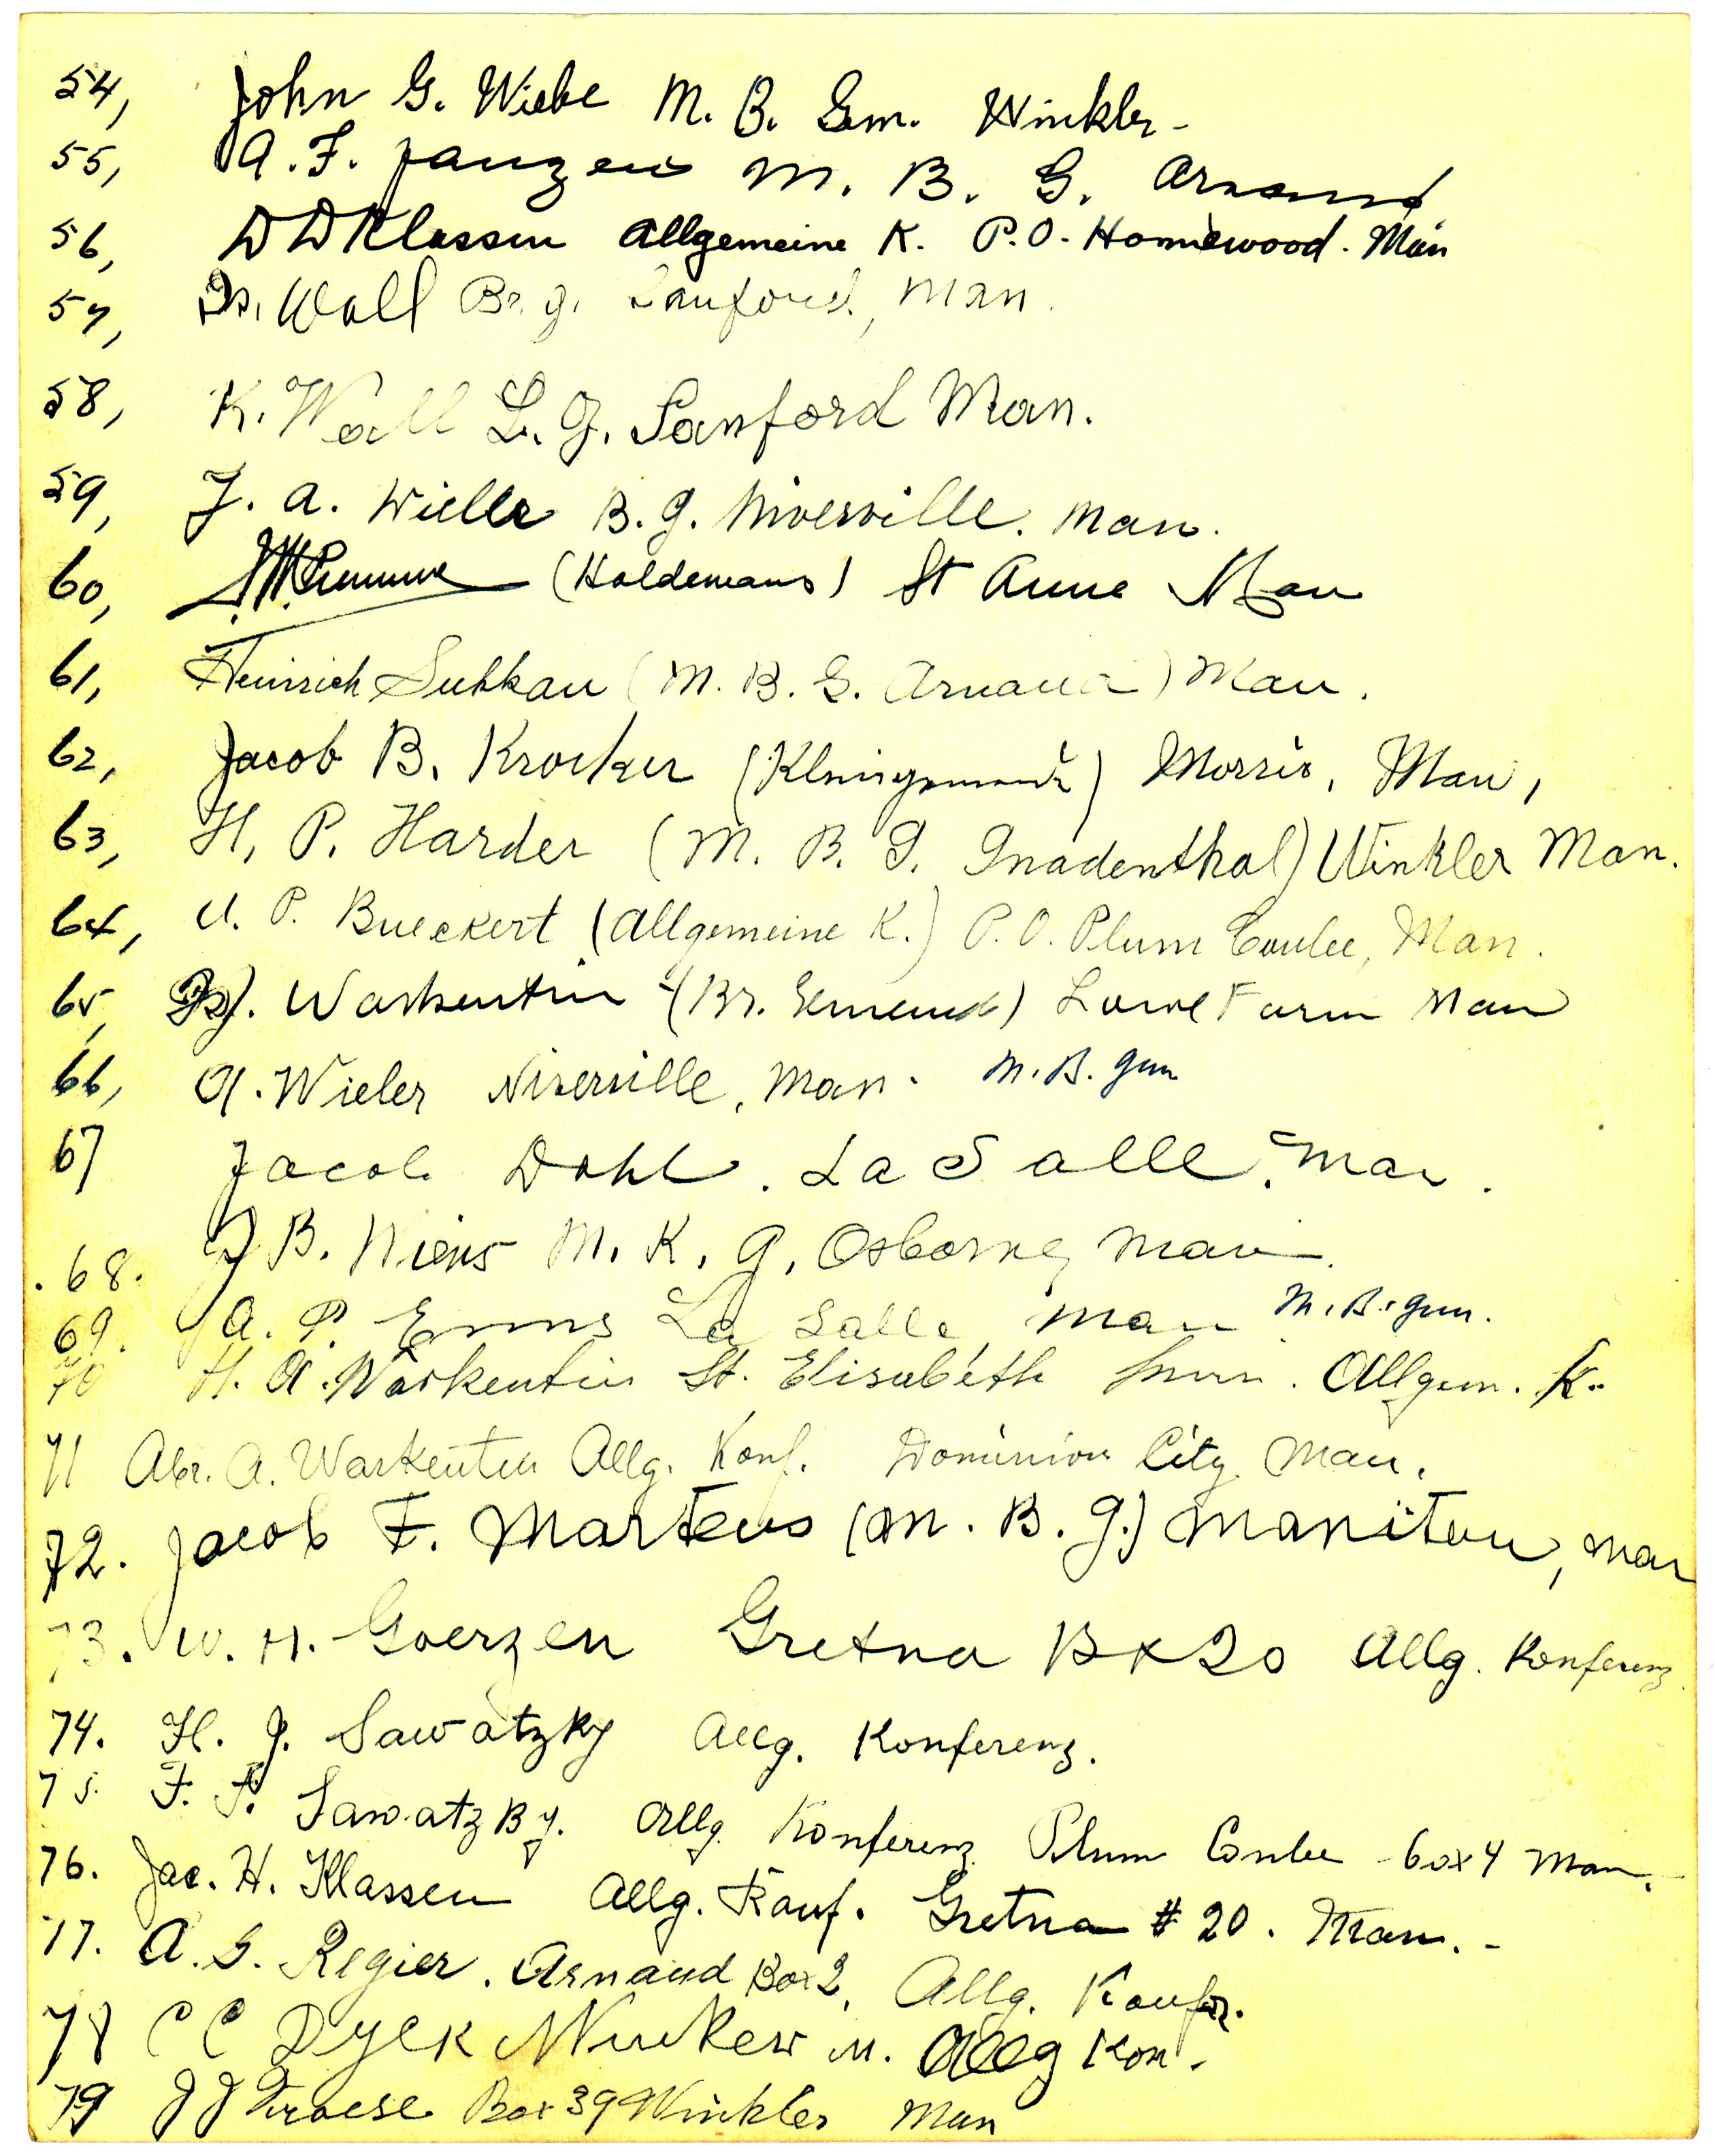 54, John G. Wiebe M. B. Gem. Winkler -
55, A. F. Janzen M. B. G. Arnaud
56, D D Klassen Allgemeine K. P.O. Homewood. Man
57, Is. Wall Br. g. Sanford, Man.
58, K. Wall B. G. Sanford Man.
59, J. A. Wieler B. G. Niverville. Man.
60, (Holdemans) St Anne Man
61, Heinrich Sukkau (M. B. G. Arnaud) Man.
62, Jacob B. Kroeker (Kleingemeinde) Morris, Man,
63, H. P. Harder (M. B. G. Gnadenthal) Winkler Man.
64, P. Bueckert (Allgemeine K.) P. O. Plum Coulee, Man.
65, J. Warkentin (Br. Gemeinde) Lowe Farm Man
66, A. Wieler Niverville, Man. M. B. Gem
67 Jacob Dahl. La Salle. Man.
.68. J B. Niens M. K. G. Osborne, Man.
69. A. P. Enns La Salle, Man M. B. Gem.
70 H. A. Warkentin St. Elisabeth Man. Allgem. K.
71 Abr. A. Warkentin Allg. Konf. Dominion City Man.
72. Jacob F. Martens (M. B. G.) Manitou, Man
73. W. H. Goerzen Gretna Bx 20 Allg. Konferenz
74. H. J. Sawatzky Allg. Konferenz.
75. F. F. Sawatzky. Allg Konferenz Plum Coulee box 4 Man.
76. Jac. H. Klassen Allg. Konf. Gretna # 20. Man. -
77. A. G. Regier. Arnaud Box 2, Allg. Konfer.
78 C C Dyck M. Allg Kon.
79 J J Froese Box 39 Winkler Man